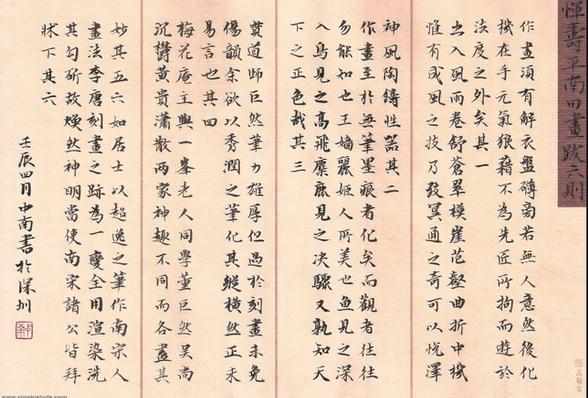 惲壽平南田畫跋六則
作畫須有解衣盤礴旁若無人意然後化
機在手元氣狼藉不為先匠所拘而遊於
法度之外矣其一
出入風雨卷舒蒼翠模崖范壑曲折中機
惟有成風之技乃致冥通之奇可以悅澤
神風陶鑄性器其二
作畫至於無筆墨痕者化矣而觀者往往
勿能知也王嬙麗姬人所美也魚見之深
入鳥見之高飛麋鹿見之決驟又孰知天
下之正色哉其三
貫道師巨然筆力雄厚但過於刻畫未免
傷韻余欲以秀潤之筆化其縱橫然正未
易言也其四
梅花庵主與一峯老人同學董巨然吳尚
沉鬱黃貴瀟散兩家神趣不同而各盡其
妙其五六如居士以超逸之筆作南宋人
畫法李唐刻畫之跡為一變全用渲染洗
其勾斫故煥然神明當使南宋諸公皆拜
牀下其六
壬辰四月中南書於深圳